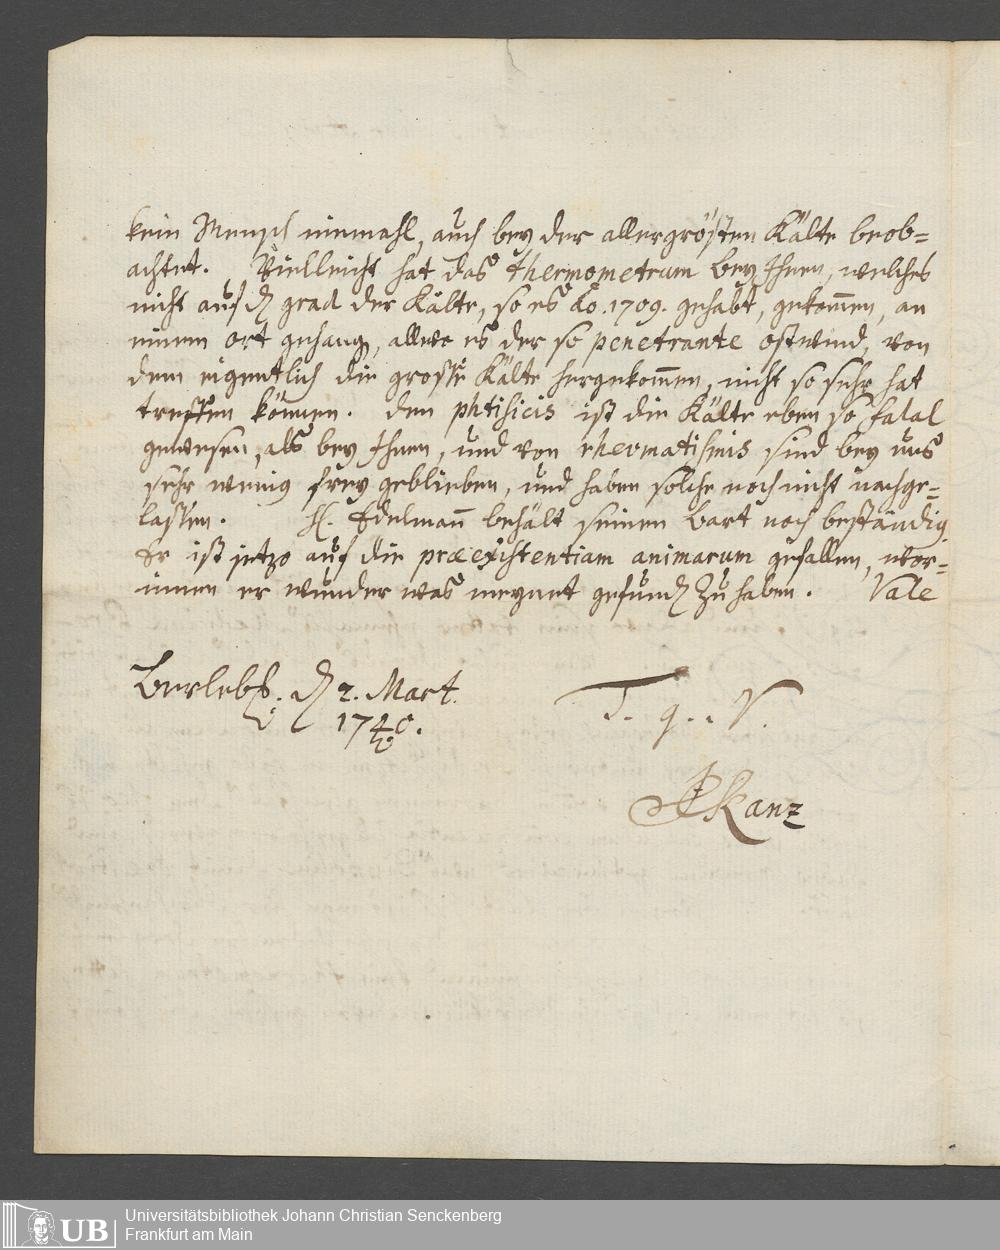 kein Mensch niemahl, auch bey der allergrösten Kälte beob=
achtet. Vielleicht hat das thermometrum bey Ihnen, welches
nicht auf d. grad der Kälte, so es Ao. 1709. gehabt, gekom̄en, an
einem ort gehang., allwo es der so penetrante ostwind, von
dem eigentlich die grosse Kälte hergekom̄en, nicht so sehr hat
treffen können. Den phtisicis ist die Kälte eben so fatal
gewesen, als bey Ihnen, und von rhevmatismis sind bey uns
sehr wenig frey geblieben, und haben solche noch nicht nachge=
lassen. H. Edelman̄ behält seinen bart noch beständig.
Er ist jetzo auf die præexistentiam animarum gefallen, wor=
innen er wunder was meynet gefund. zu haben. Vale
Berleb. d. 2. Mart.
1740.
T. q.. V.
Kanz
UB
Universitätsbibliothek Johann Christian Senckenberg
Frankfurt am Main